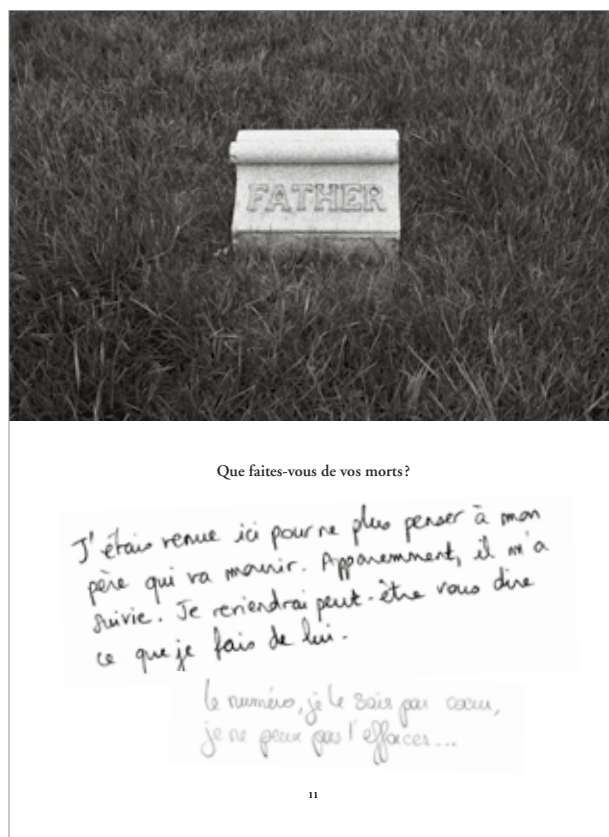 FATHER
Que faites-vous de vos morts?
J'étais venue ici pour ne plus penser à mon
père qui va mourir. Apparemment, il m'a
suivie. Je reviendrai peut-être vous dire
ce que je fais de lui.
le numéro, je le sais par cœur,
je ne peux pas l'effacer...
11